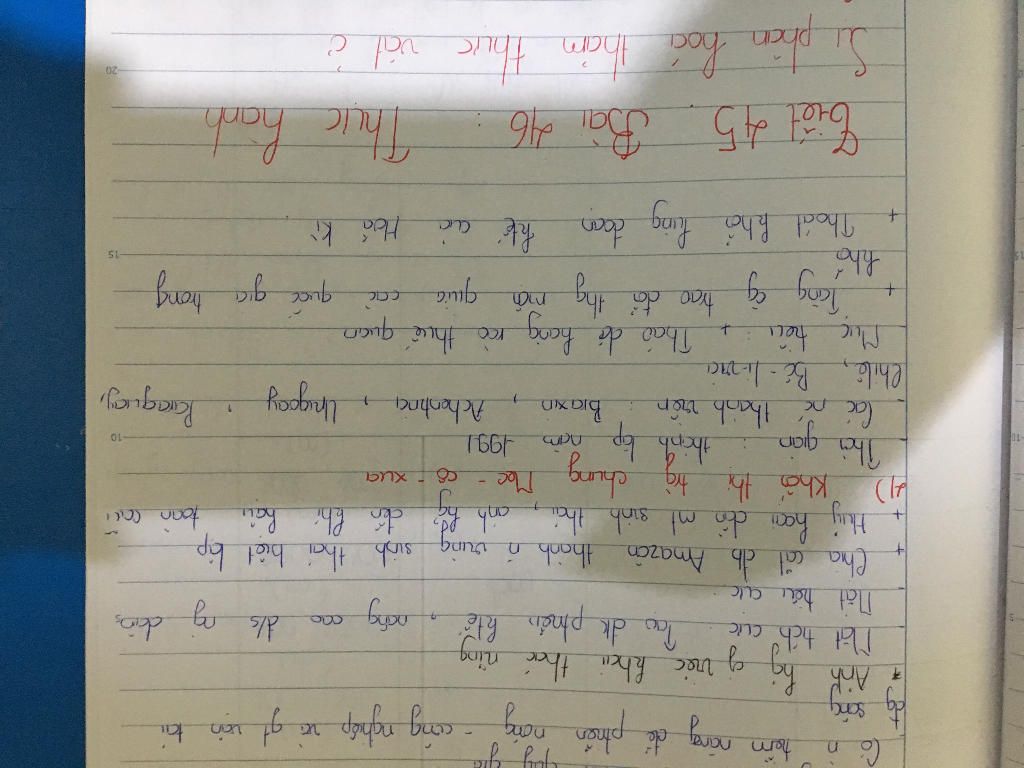 quý giá
Có n tiềm năng để phtriển nông - công nghiệp và gt vận tải
đg sông
* Ảnh hg of việc khai thác rừng
- Mặt tích cực : Tạo đk phtriển ktế , nâng cao đ/s ng dân
- Mặt tiêu cực
+ Chia cắt đb Amazôn thành n vùng sinh thái biệt lập
+ Huỷ hoại dần mt sinh thái , ảnh hg đến khí hậu toàn cầu
4) Khối thị tg chung Mec - cô - xua
- Thời gian : thành lập năm 1991
- Các nc thành viên : Braxin , Achentina , Urugoay , Paragoay,
Chilê , Bô - li - via
- Mục tiêu : + Tháo dỡ hàng rào thuế quan
+ Tăng cg trao đổi thg mại giữa các quốc gia trong
khối
+ Thoát khỏi lũng đoạn ktế của Hoa Kì
Tiết 45. Bài 46 : Thực hành
Sự phân hoá thảm thực vật ở